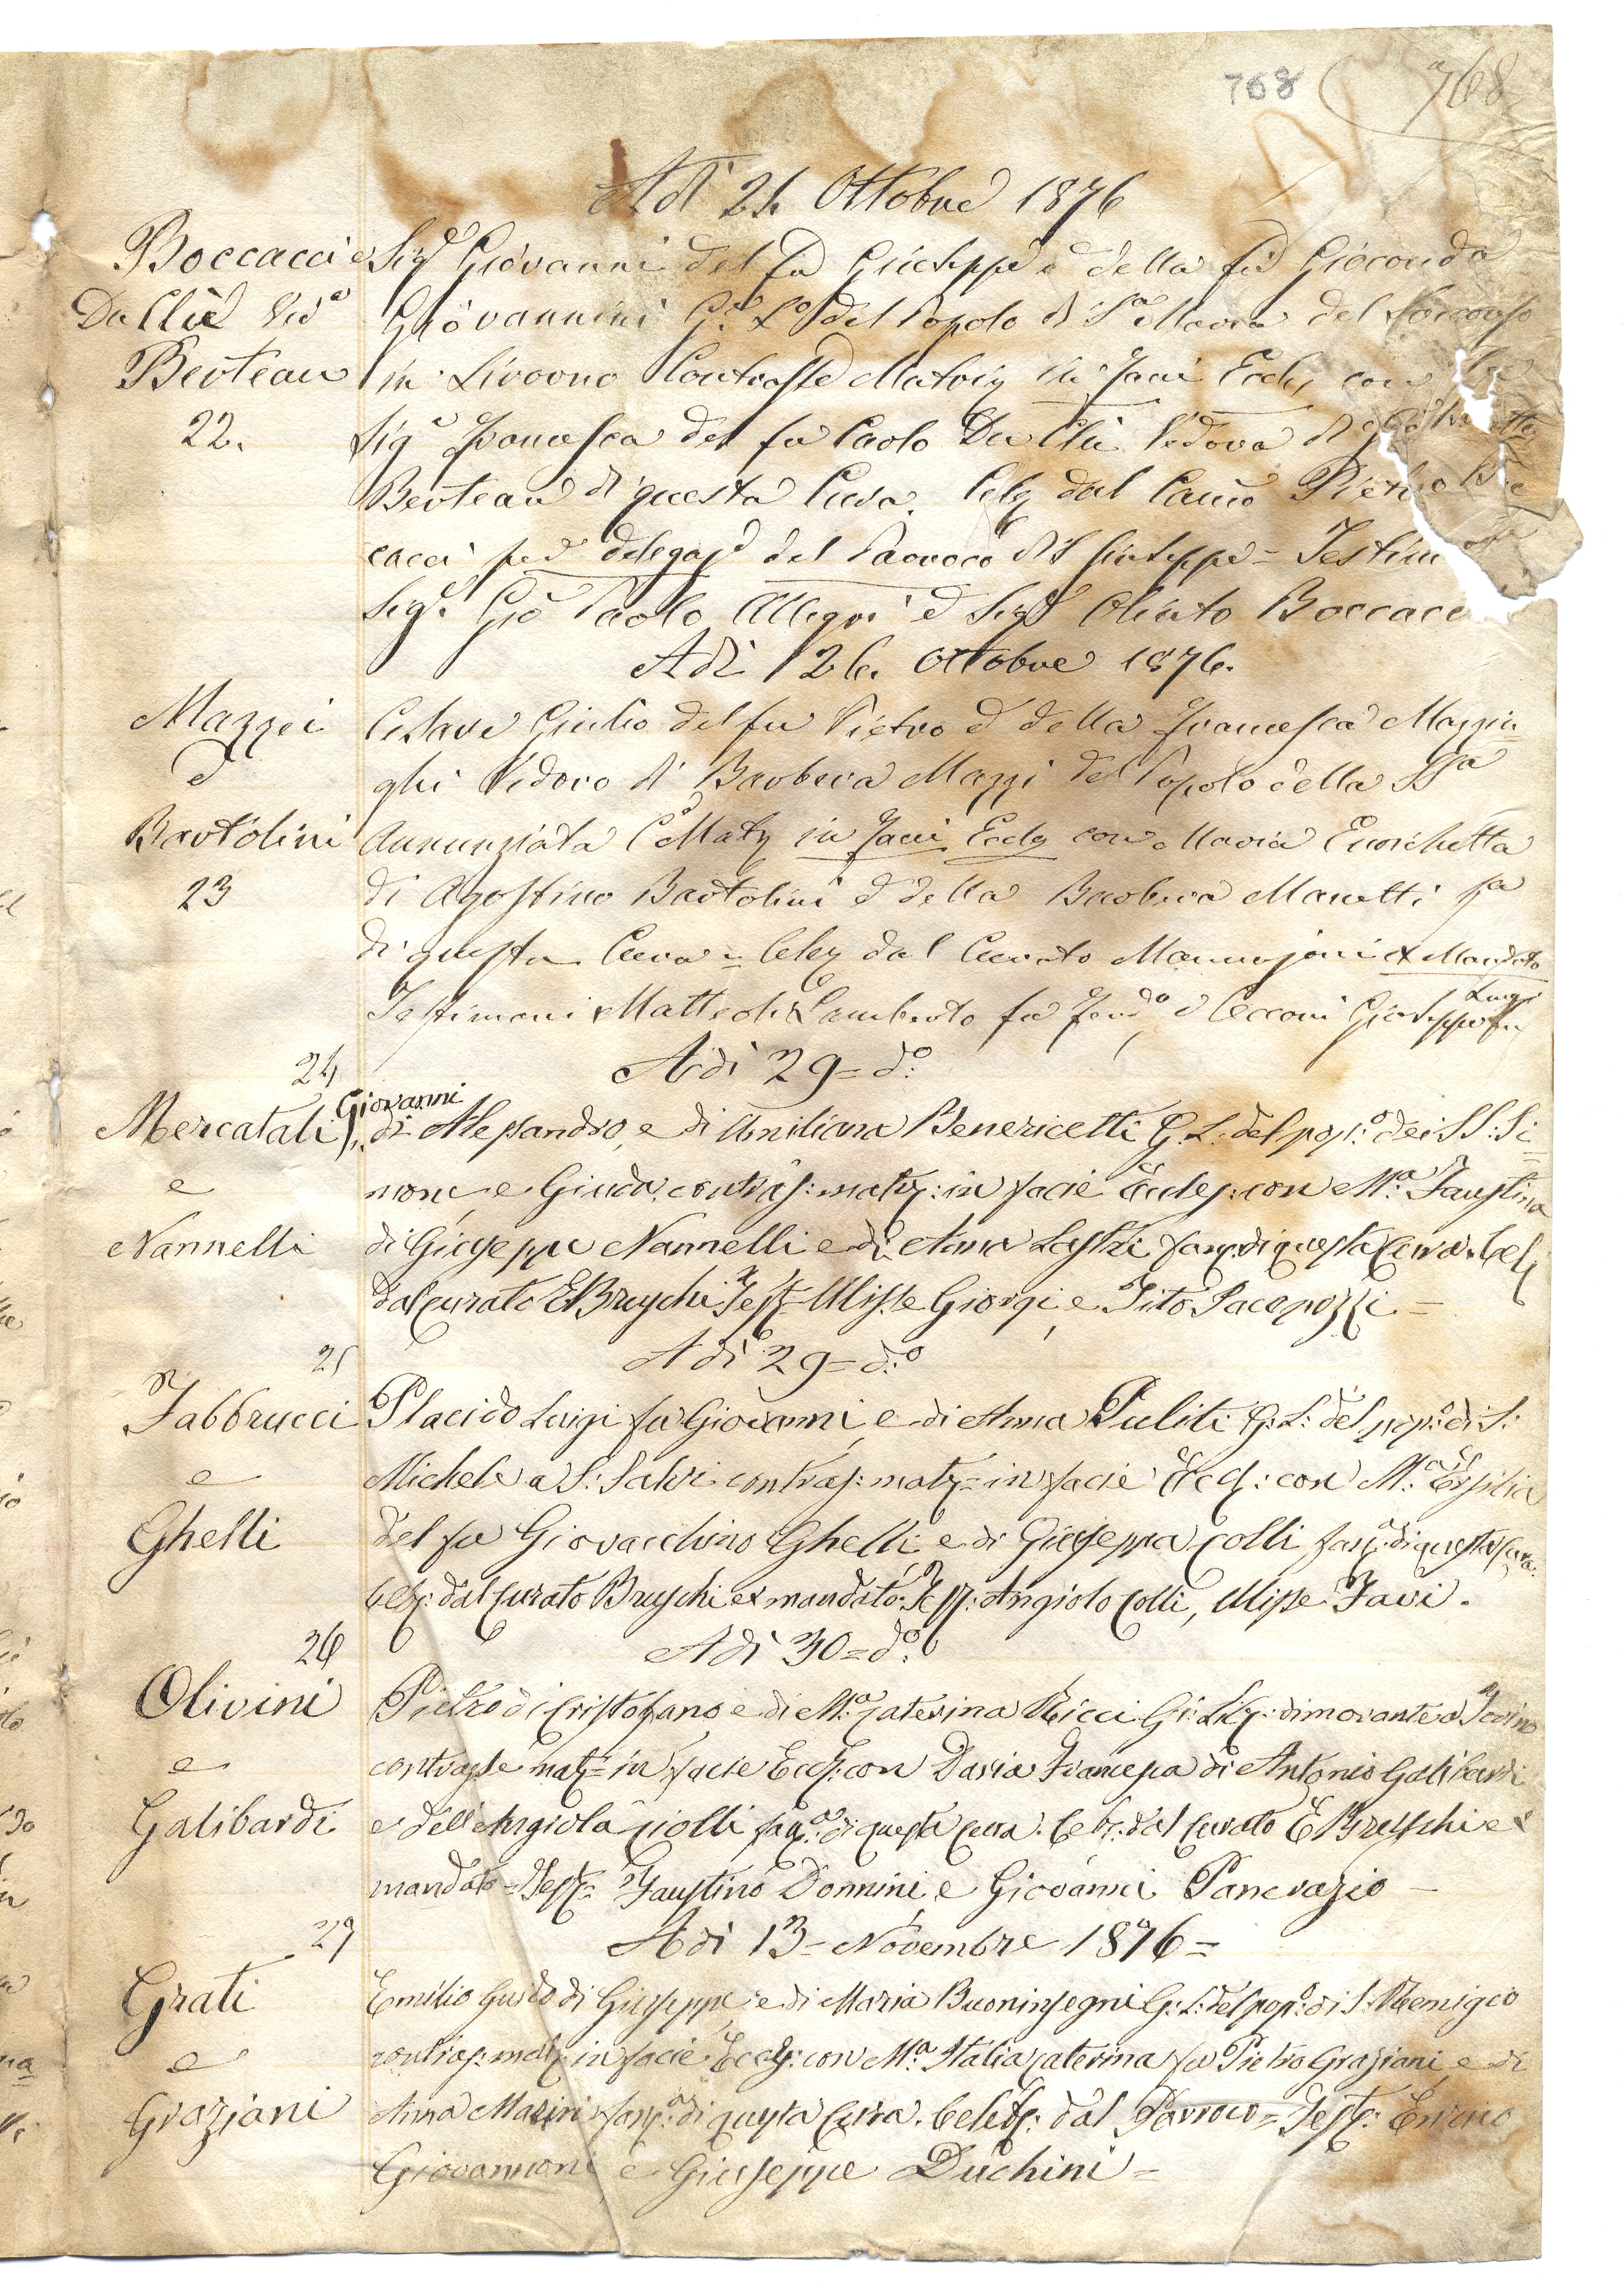 768 768
Adì 21. Ottobre 1876
Boccacci e Sigr Giovanni del fu Giuseppe e della fu Gioconda
Du Cliè Veda Giovannini Ge Lo del Popolo di Sa Maria del Soccorso
Berteau in Livorno Contrasse Matrig in facie Eccles con la
22. Siga Francesca del fu Paolo Du Cliè Vedova di
Berteau di questa Cura. Celeg dal Canco Pietro Boc
cacci per delegaz del Parroco di S Giuseppe = Testim
Sigr Gio Paolo Allegri e Sigr Olinto Boccacci
Adì 26. Ottobre 1876.
Mazzei Cesare Giulio del fu Pietro e della Francesca Mazzin=
e ghi Vedovo di Barbera Mazzi del Popolo della SSa
Bartolini Annunziata C Matg in facie Eccles con Maria Enrichetta
23 di Agostino Bartolini e della Barbera Manetti fa
di questa Cura = Celeg dal Curato Mannajoni ex Mandato
Testimoni Matteoli Lamberto fu Ferdo e Cecconi Giuseppe fu Luigi
24 Adì 29 = do:
Mercatali Giovanni di Alessandro, e di Umiliana Benericetti G. L. del popo: dei SS: Si=
e mone e Giuda, contras: matr: in facie Eccles: con Ma: Faustina
Nannelli di Giuseppe Nannelli e di Anna Lastri fanc. di questa Cura. Cel:
dal curato E Bruschi Test = Ulisse Giorgi, e Tito Jacopozzi =
25 Adì 29 = d:o
Fabbrucci Placido Luigi fu Giovanni, e di Anna Puliti G: L: del popo: di S:
e Michele a S: Salvi contras: matr = in facie Eccl: con Ma: Ersilia
Ghelli del fu Giovacchino Ghelli, e di Giuseppa Colli fanc: di questa Cura.
Celeb: dal Curato Bruschi ex mandato. Test: Angiolo Colli, Ulisse Favi.
26 Adì 30 = do:
Olivini Pietro di Cristofano e di Ma: Caterina Ricci Gi: Li: dimorante a Torino
e contrasse matr = in facie Eccl: con Daria Francesca di Antonio Galibardi
Galibardi e dell'Angiola Ciolli fanc: di questa Cura. Celeb: dal Curato E Bruschi ex
mandato = Test = Faustino Donnini, e Giovanni Pancrazio —
27 Adì 13 = Novembre 1876 =
Grati Emilio Guido di Giuseppe, e di Maria Buoninsegni G: L: del popo: di S: Remigio
e contras: matr in facie Eccles: con Ma: Italia Caterina fu Pietro Graziani, e di
Graziani Anna Masini fanc: di questa Cura. Celeb: dal Parroco = Test:
Giovannoni, e Giuseppe Duchini =